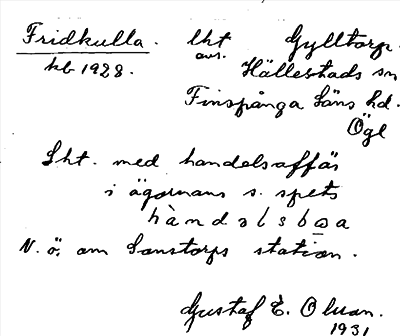 Fridkulla. lht Gylltorp.
kb 1928. avs. Hällestads sn
Finspånga läns hd.
Ögl
Lht. med handelsaffär
i ägornans s. spets
hàndəlsbωa
N. ö. om Sonstorps station.
Gustaf E. Olsson.
1931